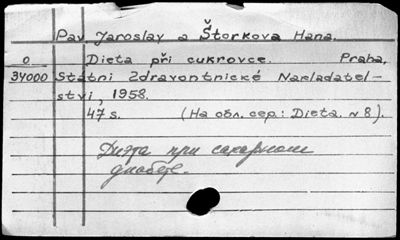 Pav Jaroslav a Štorkova Hana.
0 Dieta při cukrovce. Praha,
34000 Státni Zdravontnické Nakladatel-
stvi, 1958.
47 s. (На обл. сер.: Dieta. № 8).
Диэта при сахарном
диабете.